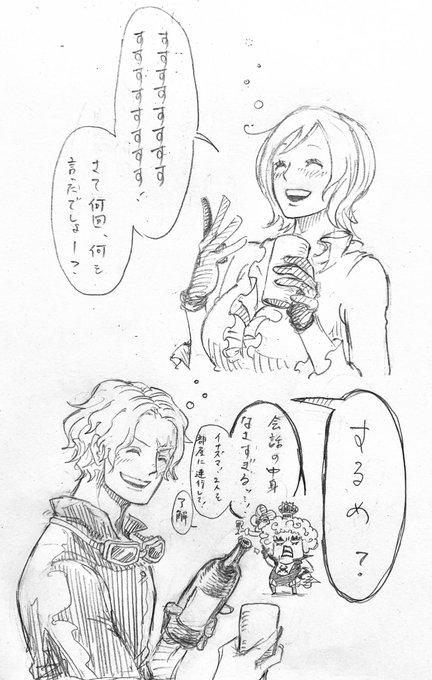 すすすすすすすす
すすすすすすすす!
さて何回、何を
言ったでしょー?
するめ?
会話の中身
なさすぎるッ!
イナズマ!2人を
部屋に連行して!
了解